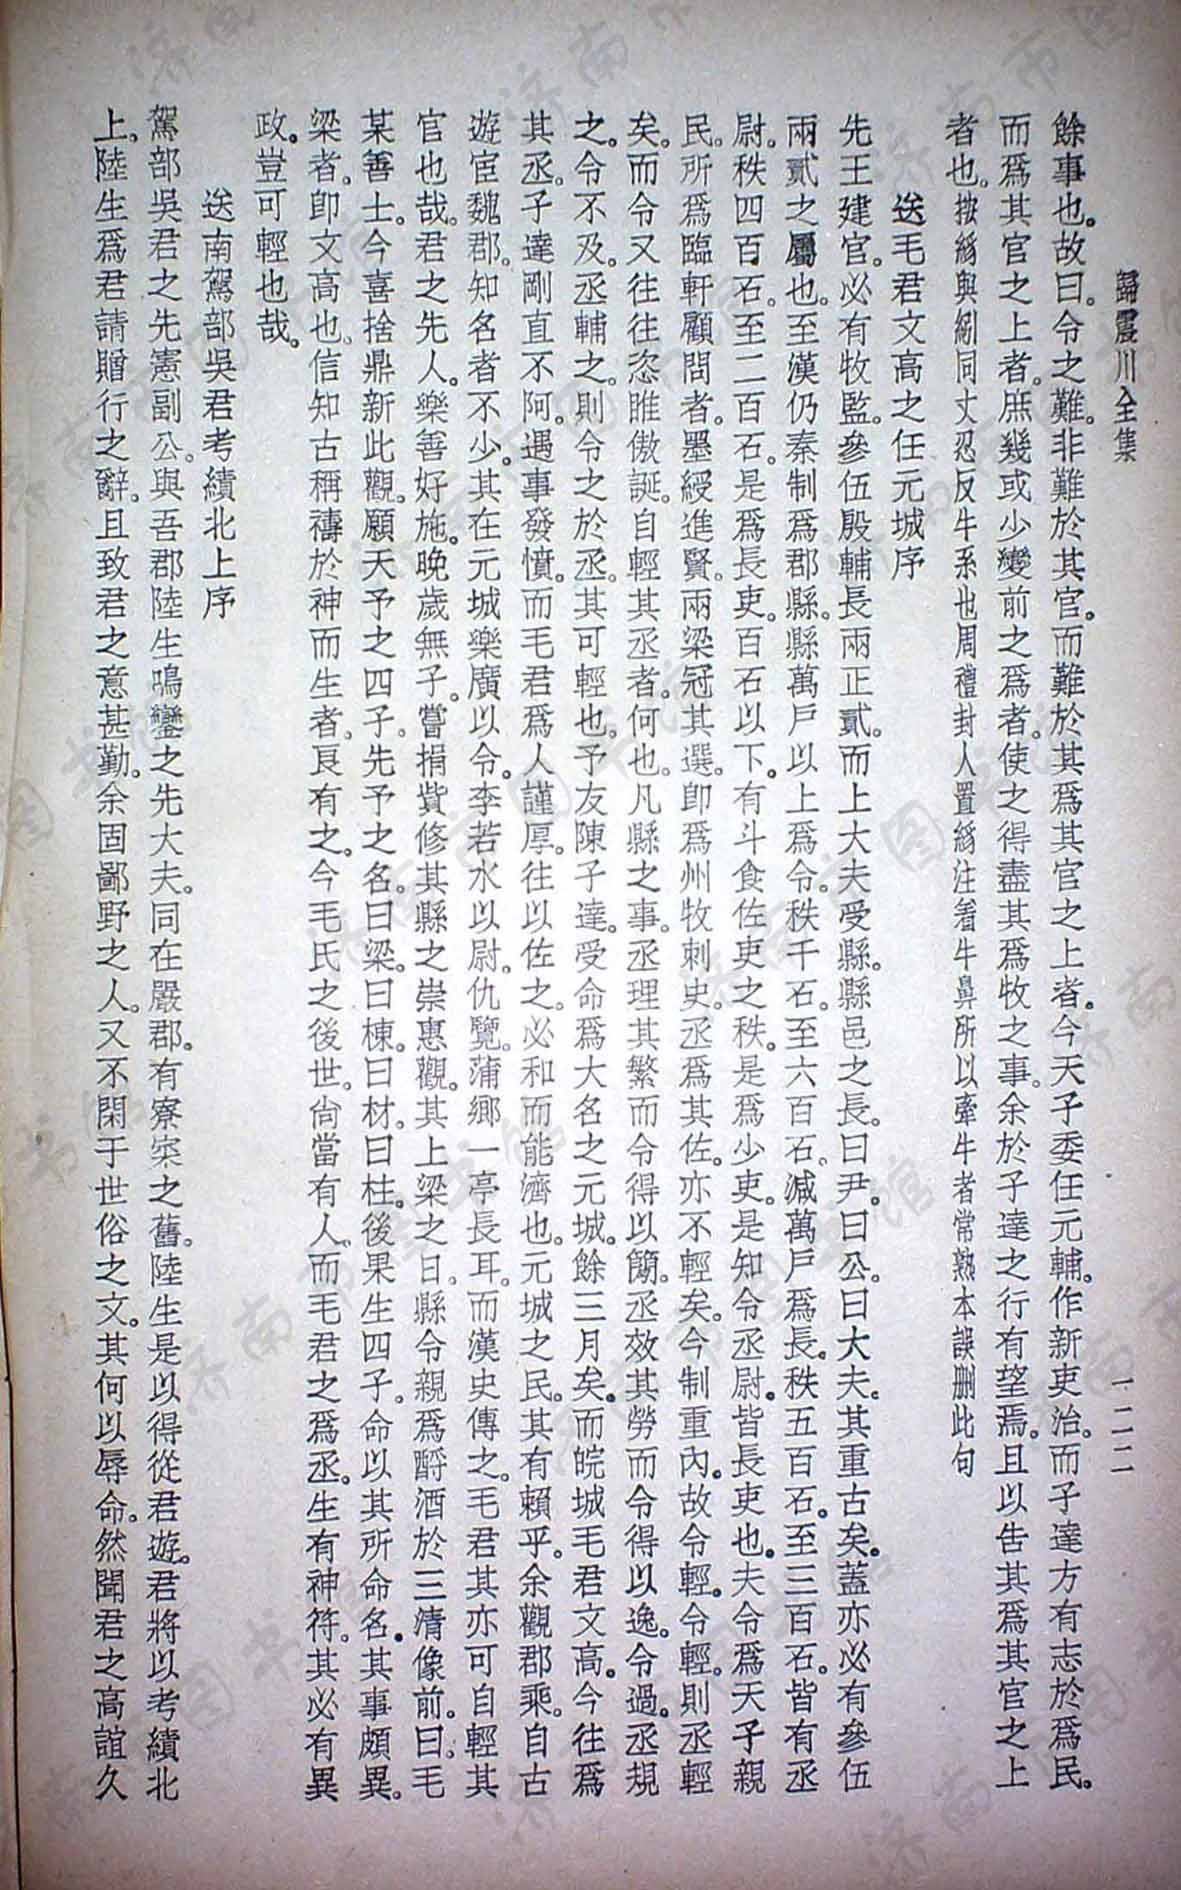 歸震川全集
一二二
餘事也。故曰。令之難。非難於其官。而難於其爲其官之上者。今天子委任元輔。作新吏治。而子達方有志於爲民。
而爲其官之上者。庶幾或少變前之爲者。使之得盡其爲牧之事。余於子達之行有望焉。且以告其爲其官之上
者也。按絼與紖同丈忍反牛系也周禮封人置絼注著牛鼻所以牽牛者常熟本誤删此句
送毛君文高之任元城序
先王建官。必有牧監。參伍殷輔長兩正貳。而上大夫受縣。縣邑之長。曰尹。曰公。曰大夫。其重古矣。蓋亦必有參伍
兩貳之屬也。至漢仍秦制爲郡縣。縣萬戶以上爲令。秩千石。至六百石。減萬戶爲長。秩五百石。至三百石。皆有丞
尉。秩四百石。至二百石。是爲長吏。百石以下。有斗食佐吏之秩。是爲少吏。是知令丞尉。皆長吏也。夫令爲天子親
民。所爲臨軒顧問者。墨綬進賢。兩梁冠其選。卽爲州牧刺史。丞爲其佐。亦不輕矣。今制重內。故令輕。令輕。則丞輕
矣。而令又往往恣睢傲誕。自輕其丞者。何也。凡縣之事。丞理其繁而令得以簡。丞效其勞而令得以逸。令過。丞規
之。令不及。丞輔之。則令之於丞。其可輕也。予友陳子達。受命爲大名之元城。餘三月矣。而皖城毛君文高。今往爲
其丞。子達剛直不阿。遇事發憤。而毛君爲人謹厚。往以佐之。必和而能濟也。元城之民。其有賴乎。余觀郡乘。自古
遊宦魏郡。知名者不少。其在元城樂廣以令。李若水以尉。仇覽。蒲鄉一亭長耳。而漢史傳之。毛君其亦可自輕其
官也哉。君之先人。樂善好施。晚歲無子。嘗捐貲修其縣之崇惠觀。其上梁之日。縣令親爲酹酒於三清像前。曰。毛
某善士。今喜捨鼎新此觀。願天予之四子。先予之名。曰梁。曰棟。曰材。曰柱。後果生四子。命以其所命名。其事頗異。
梁者。卽文高也。信知古稱禱於神而生者。良有之。今毛氏之後世。尙當有人。而毛君之爲丞。生有神符。其必有異
政。豈可輕也哉。
送南駕部吳君考績北上序
駕部吳君之先憲副公。與吾郡陸生鳴鑾之先大夫。同在嚴郡。有寮寀之舊。陸生是以得從君遊。君將以考績北
上。陸生爲君請贈行之辭。且致君之意甚勤。余固鄙野之人。又不閑于世俗之文。其何以辱命。然聞君之高誼久